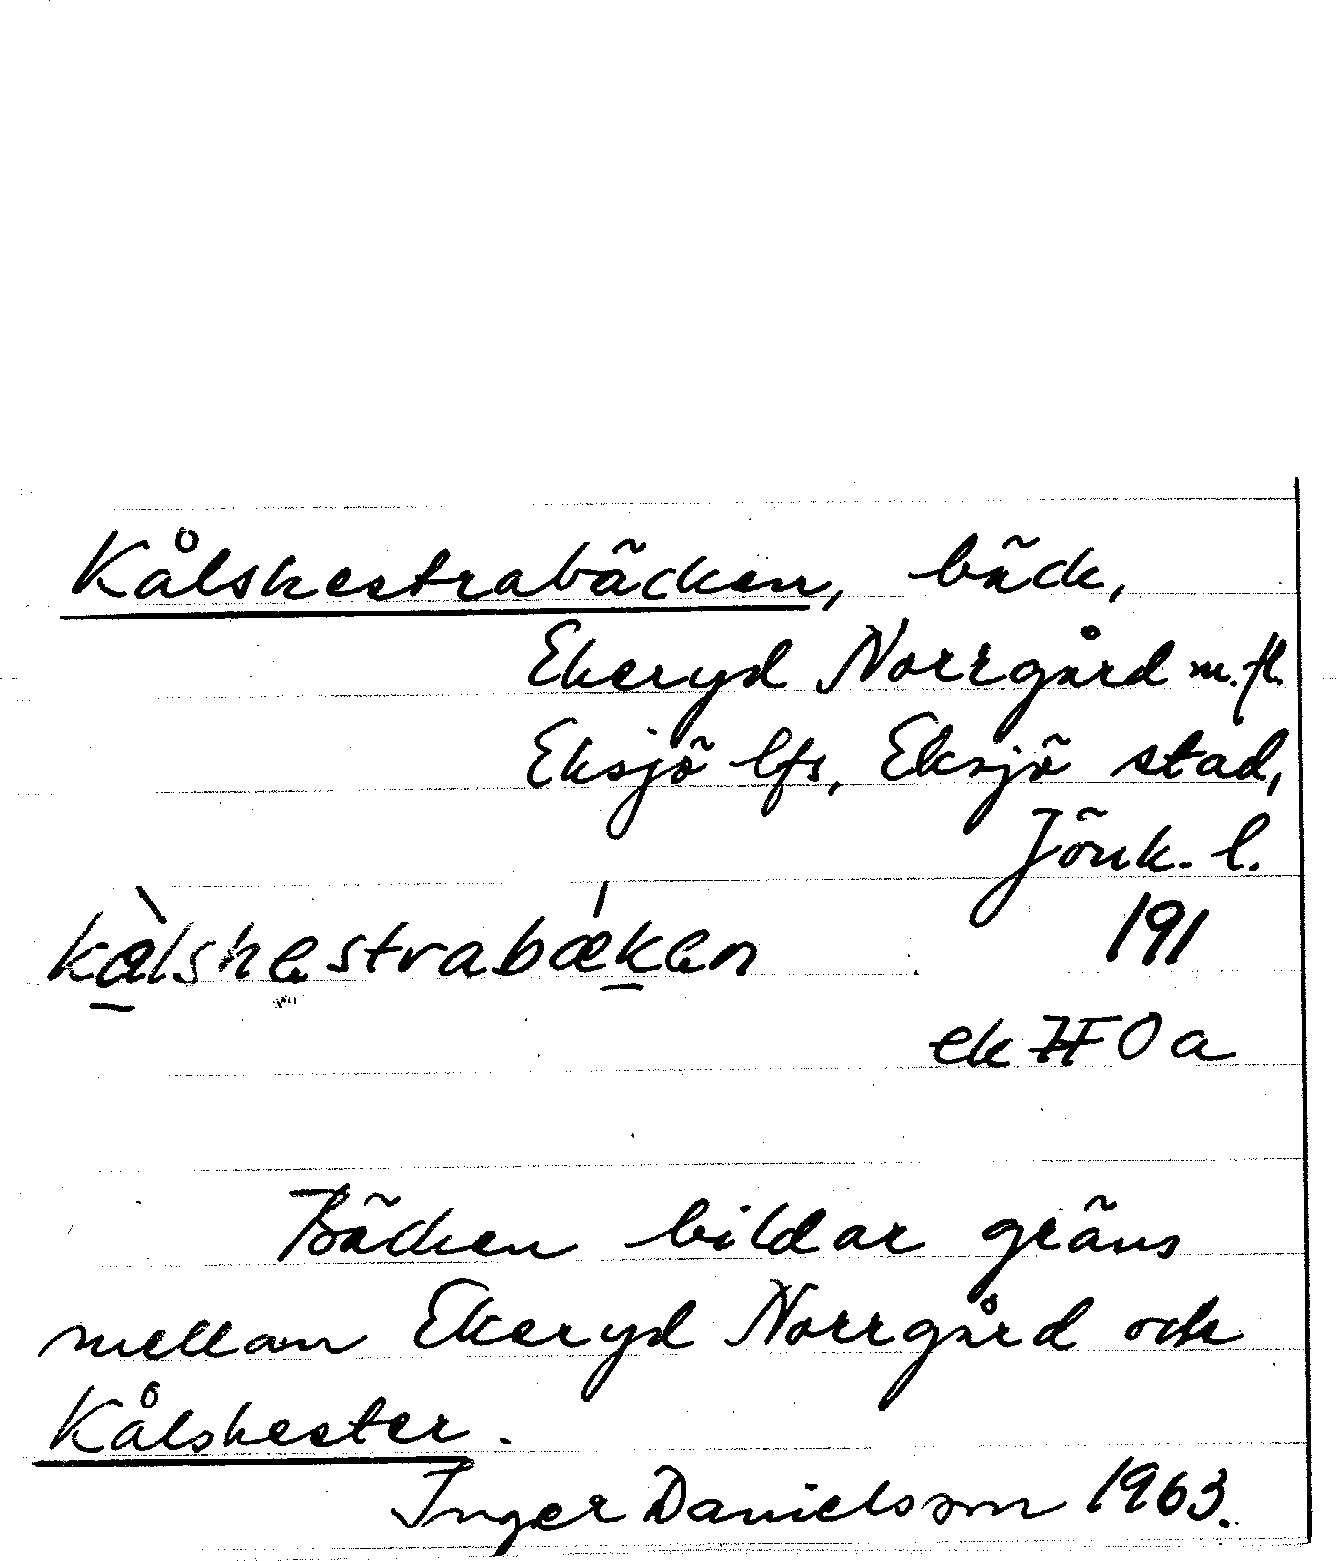 Kålshestrabäcken, bäck,
Ekeryd Norrgård m.fl.
Eksjö lfs, Eksjö stad,
Jönk. l.
kålshestrabæken 191
ek 7F0a
Bäcken bildar gräns
mellan Ekeryd Norrgård och
Kålshester.
Inger Danielsson 1963.